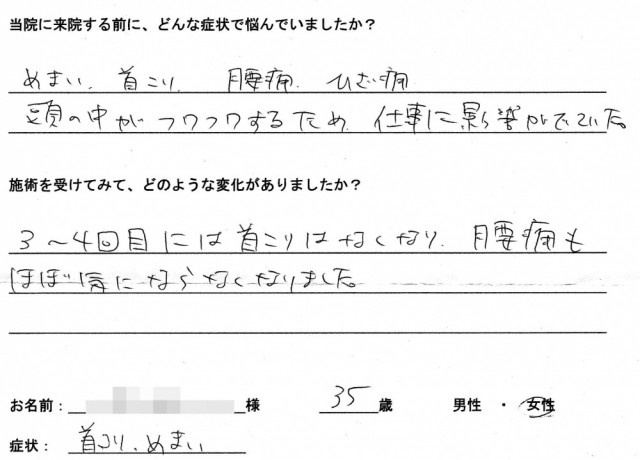 当院に来院する前に、どんな症状で悩んでいましたか？
めまい、首こり、腰痛、ひざ痛
頭の中がフワフワするため、仕事に影響がでていた。
施術を受けてみて、どのような変化がありましたか？
3〜4回目には首こりはなくなり、腰痛も
ほぼ気にならなくなりました。
お名前： 様 35歳 男性 ・ 女性
症状： 首コリ、めまい